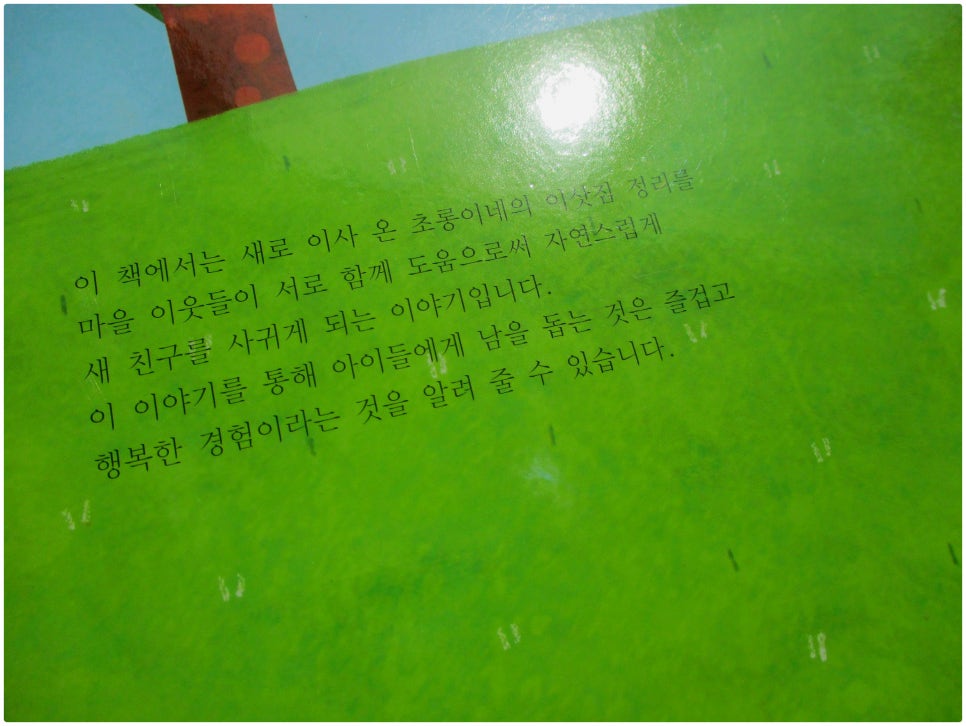 이 책에서는 새로 이사 온 초롱이네의 이삿짐 정리를
마을 이웃들이 서로 함께 도움으로써 자연스럽게
새 친구를 사귀게 되는 이야기입니다.
이 이야기를 통해 아이들에게 남을 돕는 것은 즐겁고
행복한 경험이라는 것을 알려 줄 수 있습니다.